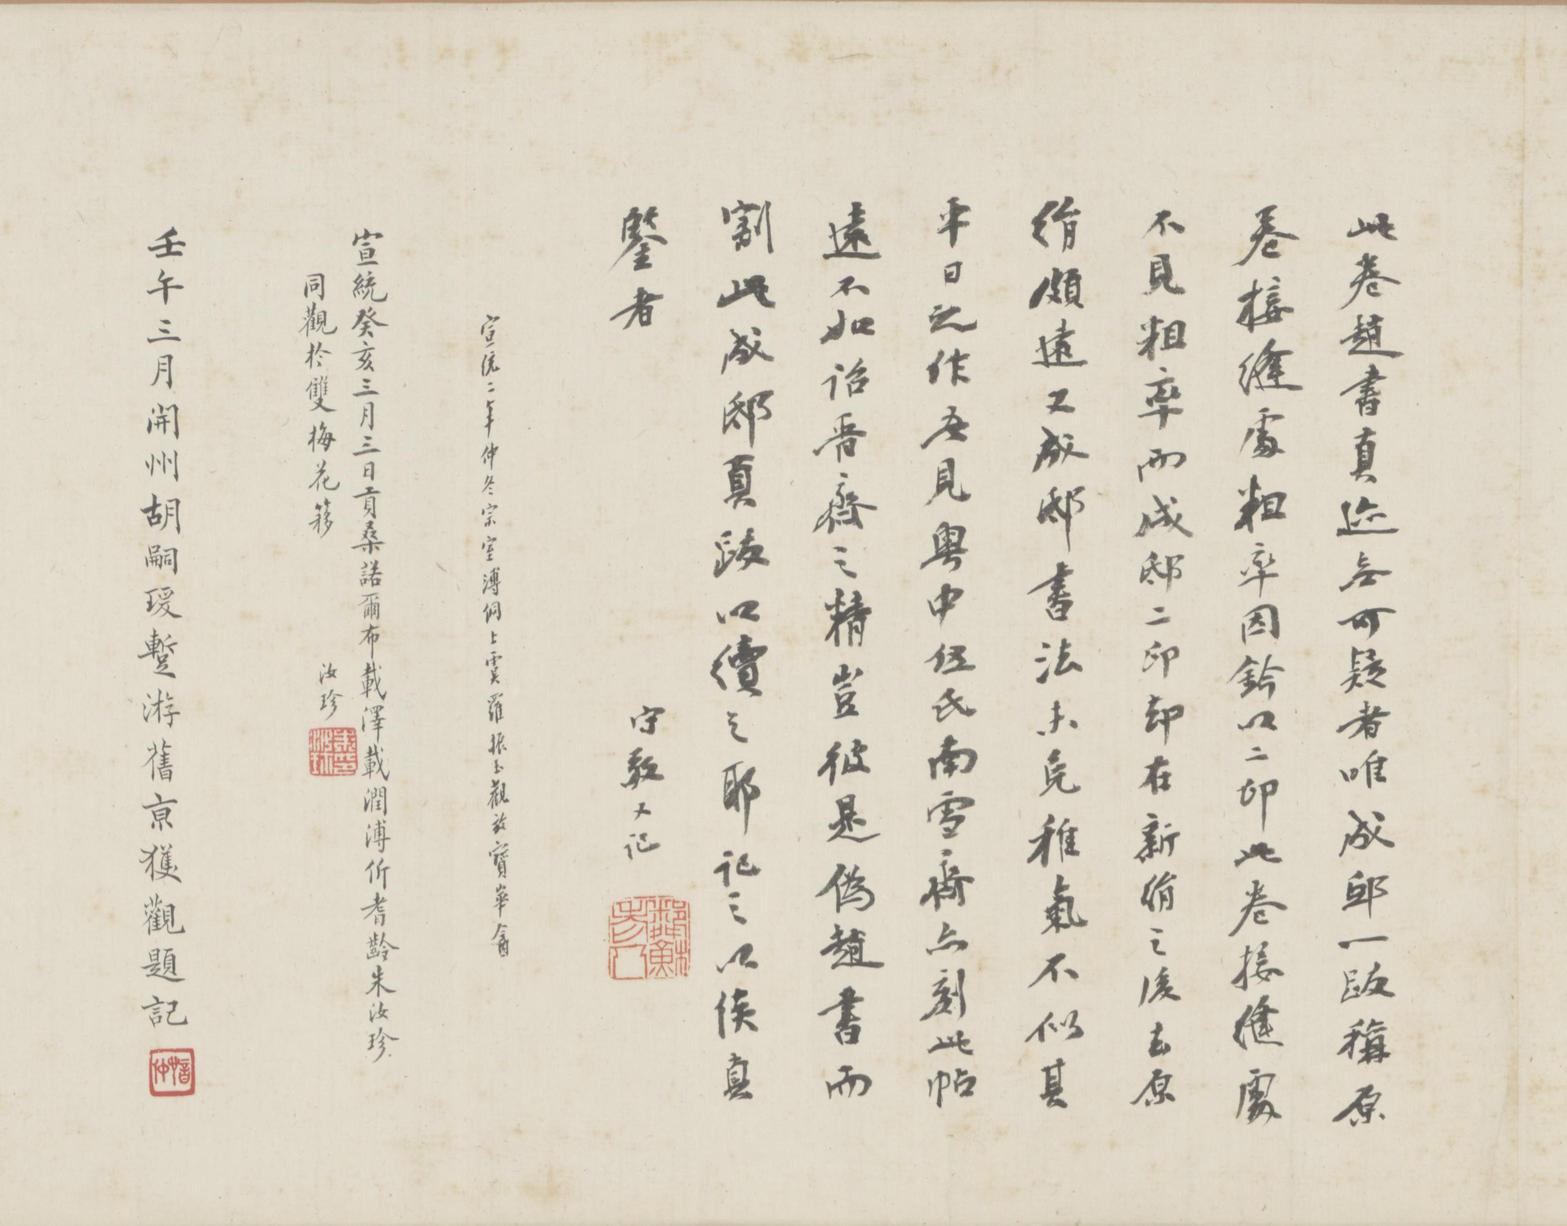 此卷趙書真迹無可疑者唯成邸一跋稱原
卷接縫處粗率因鈐以二印此卷接縫處
不見粗率而成邸二印却在新絹之後去原
絹頗遠又成邸書法未免稚氣不似其
平日之作吾見粵中伍氏南雪齋亦刻此帖
遠不如詒晉齋之精豈彼是偽趙書而
割此成邸真跋以續之耶記之以俟真
鑒者
守敬又記
宣統二年仲冬宗室溥侗上虞羅振玉觀於寶華盦
宣統癸亥三月三日貢桑諾爾布載澤載潤溥伒耆齡朱汝珍
同觀於雙梅花簃
汝珍
壬午三月開州胡嗣瑗蹔游舊京獲觀題記